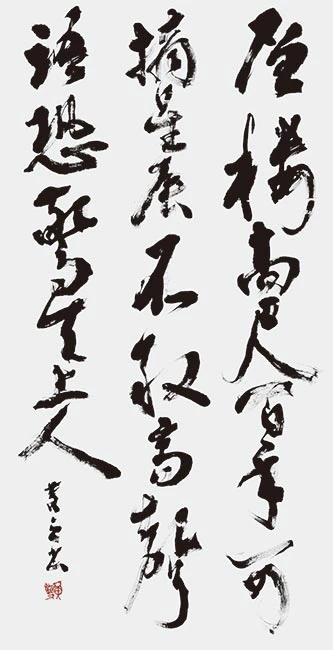 危樓高百尺手可
摘星辰不敢高聲
語恐驚天上人